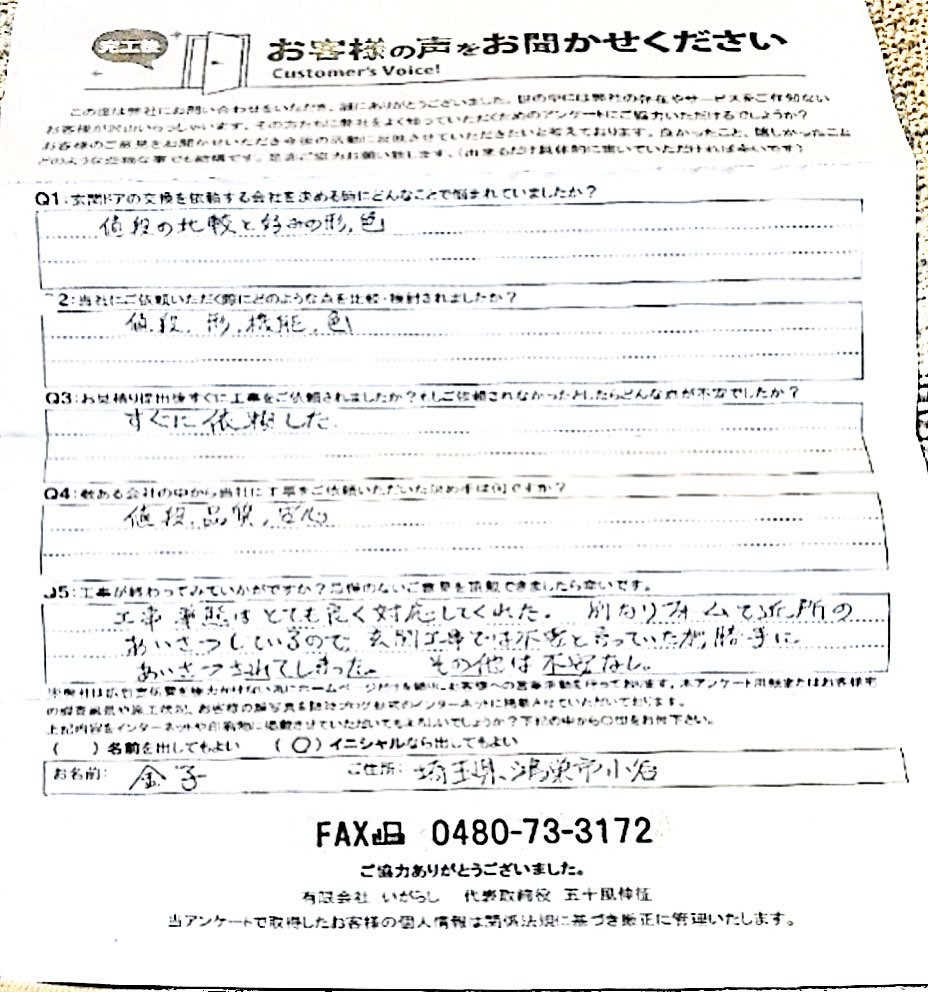 完工後
お客様の声をお聞かせください
Customer's Voice!
この度は弊社にお問い合わせをいただき、誠にありがとうございました。世の中には弊社の存在やサービスをご存知ない
お客様が沢山いらっしゃいます。その方たちに弊社をよく知っていただくためのアンケートにご協力いただけるでしょうか?
お客様のご意見をお聞かせいただき今後の活動に反映させていただきたいと考えております。良かったこと、嬉しかったこと
どのような些細な事でも結構です。是非ご協力お願い致します。(出来るだけ具体的に書いていただければ幸いです)
Q1:玄関ドアの交換を依頼する会社を決める時にどんなことで悩まれていましたか?
値段の比較と好みの形,色
2:当社にご依頼いただく際にどのような点を比較・検討されましたか?
値段,形,機能,色
Q3:お見積り提出後すぐに工事をご依頼されましたか?もしご依頼されなかったとしたらどんな点が不安でしたか?
すぐに依頼した.
Q4:数ある会社の中から当社に工事をご依頼いただいた決め手は何ですか?
値段,品質,安心
Q5:工事が終わってみていかがですか?忌憚のないご意見を頂戴できましたら幸いです。
工事 事態はとても良く対応してくれた. 別なリフォームで近所の
あいさつしているので 玄関工事では不要と言っていたが、勝手に
あいさつされてしまった。 その他は不安なし。
※弊社は広告宣伝費を極力かけない為にホームページだけを続け、お客様への営業活動を行っております。本アンケート用紙またはお客様宅
の撮影風景や施工状況、お客様の顔写真を随時ブログ形式のインターネットに掲載させていただいております。
上記内容をインターネットや印刷物に掲載させていただいてもよろしいでしょうか?下記の中から○印をお付下さい。
( )名前を出してもよい (○)イニシャルなら出してもよい
お名前: 金子 ご住所: 埼玉県鴻巣市小谷
FAX 0480-73-3172
ご協力ありがとうございました。
有限会社 いがらし 代表取締役 五十嵐
当アンケートで取得したお客様の個人情報は関係法規に基づき厳正に管理いたします。